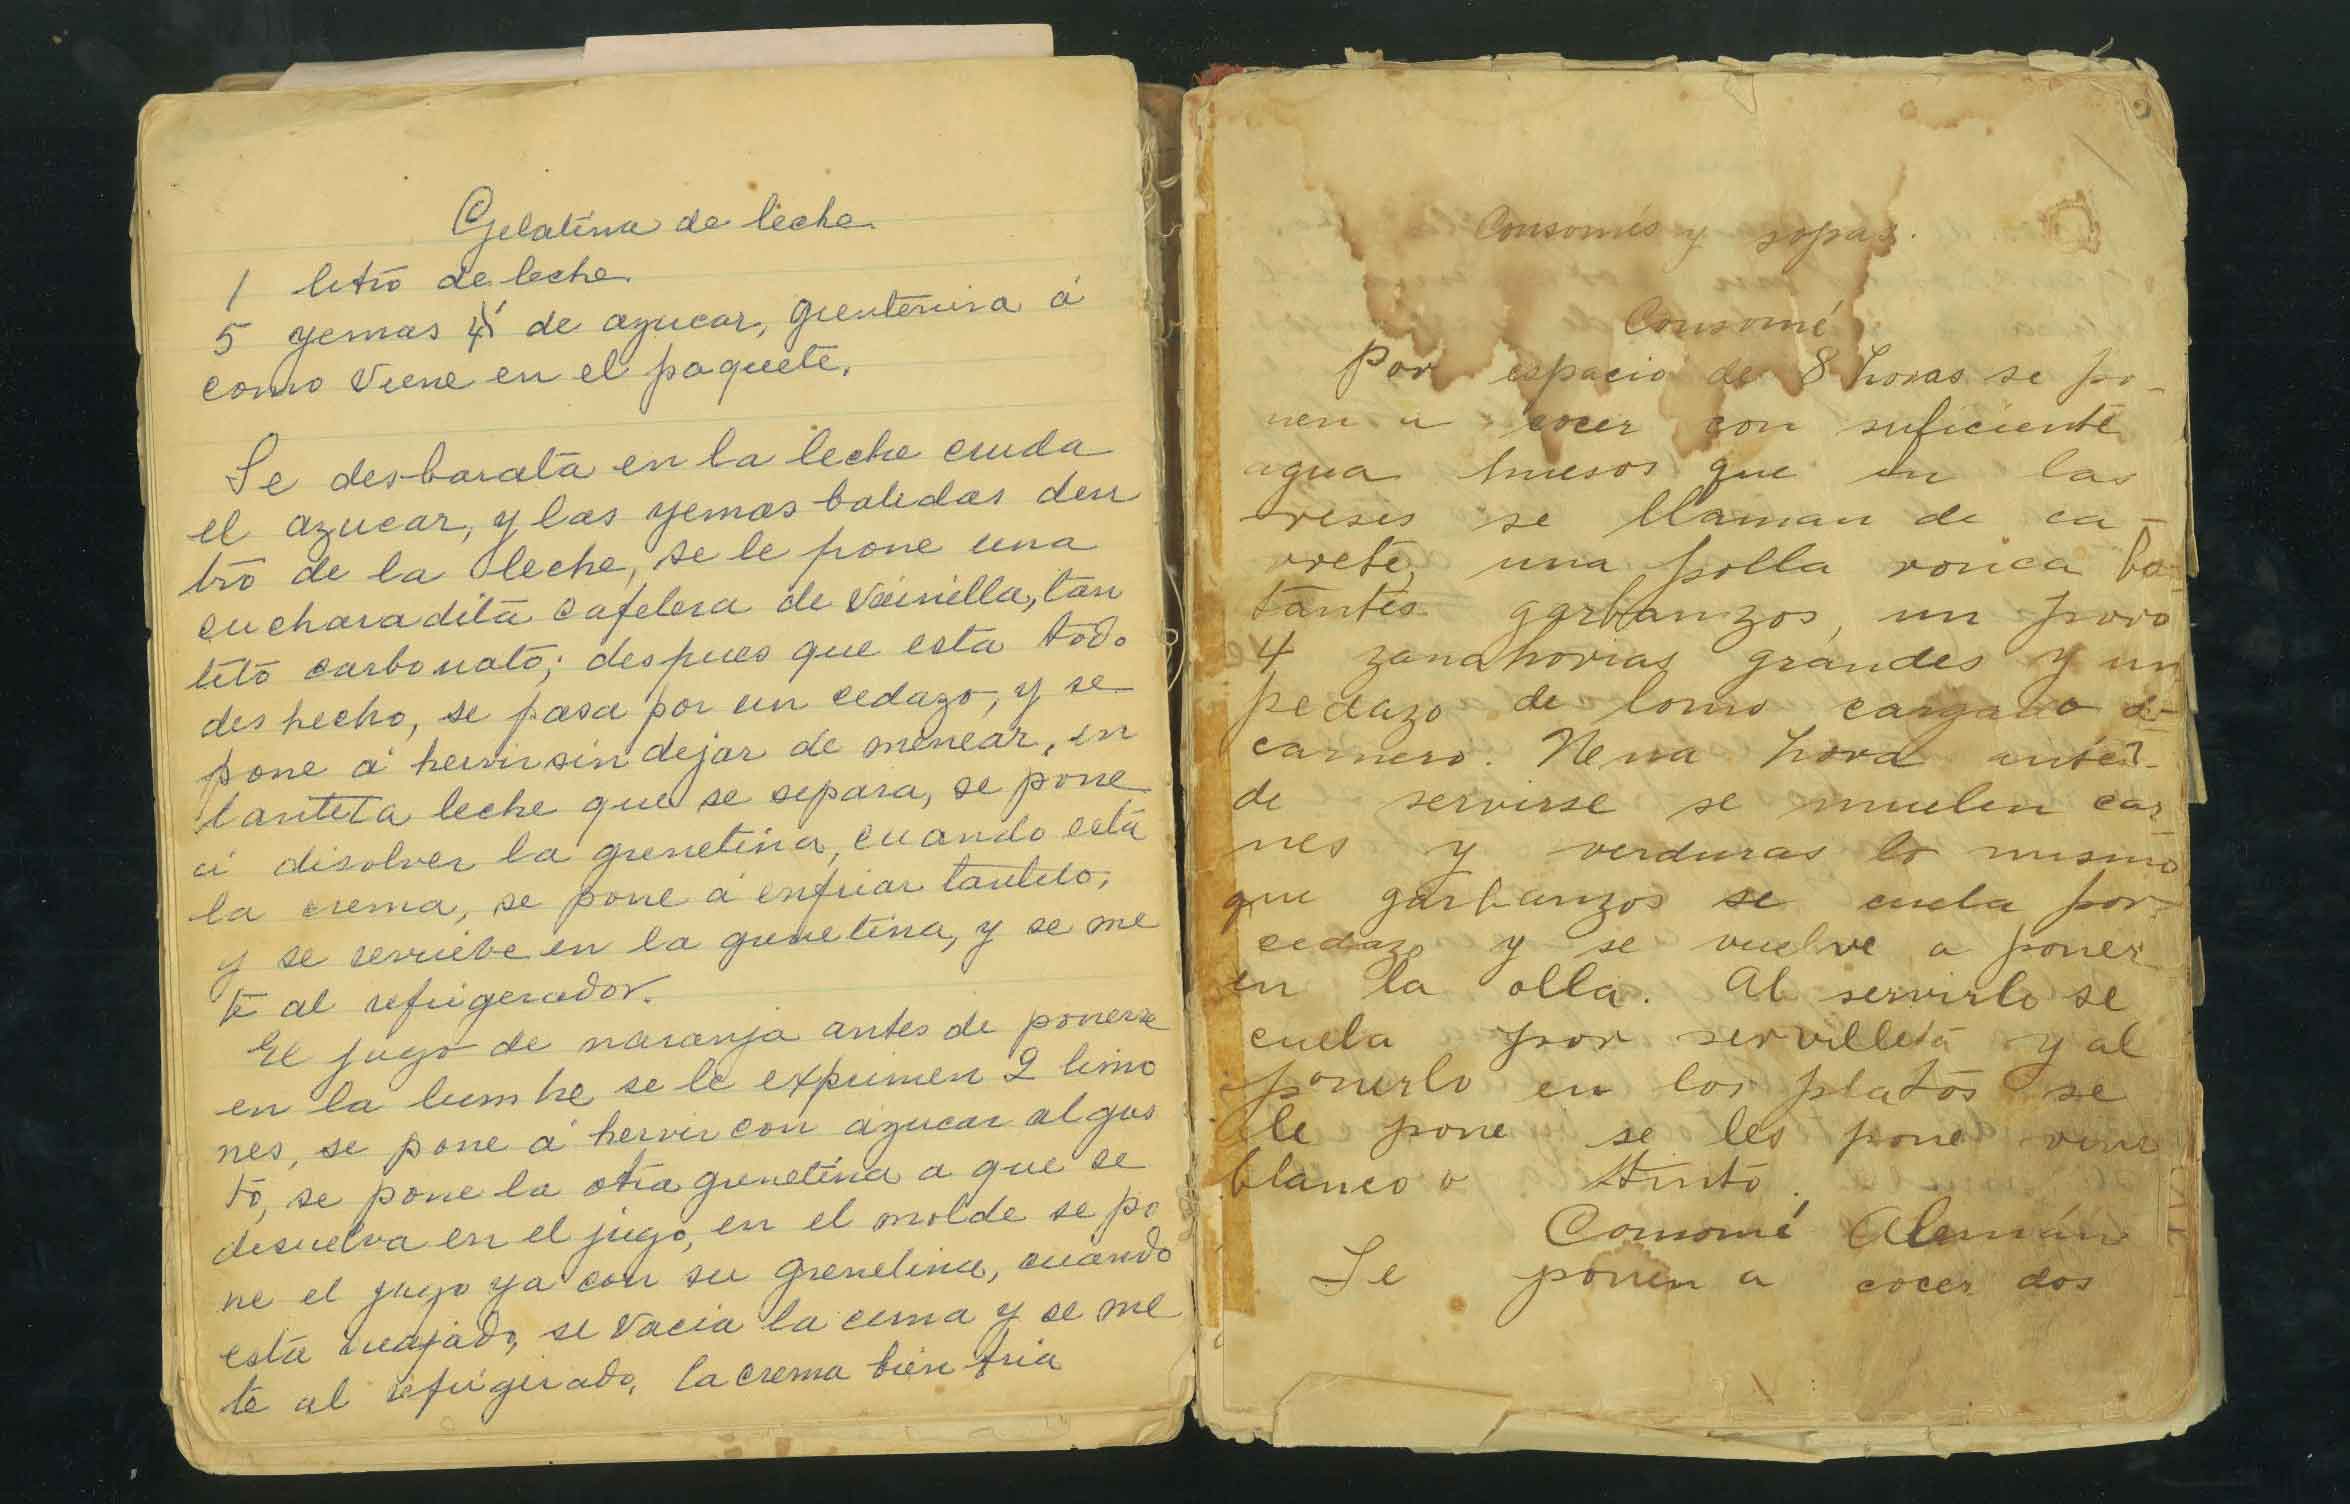 Gelatina de leche
1 litro de leche
5 yemas 4 de azucar, grenterina á
como viene en el paquete.
Se desbarata en la leche cruda
el azucar, y las yemas batidas den
tro de la leche, se le pone una
cucharadita cafetera de vainilla, tan
tito carbonato; despues que esta todo
deshecho, se pasa por un cedazo, y se
pone á hervir sin dejar de menear, en
tantita leche que se separa, se pone
á disolver la grenetina, cuando está
la crema, se pone á enfriar tantito,
y se revuebe en la grenetina, y se me
te al refrigerador.
El jugo de naranja antes de ponerse
en la lumbre se le exprimen 2 limo
nes, se pone á hervir con azucar al gus
to, se pone la otra grenetina a que se
disuelva en el jugo, en el molde se po
ne el jugo ya con su grenetina, cuando
está cuajado, se vacia la crema y se me
te al refrigerado, la crema bien fria
Consomés y sopas.
Consomé
Por espacio de 8 horas se po-
nen a cocer con suficiente
agua huesos que en las
reses se llaman de ca-
rrete, una polla ronca ba-
tantes garbanzos, un poro
4 zanahorias grandes y un
pedazo de lomo cargado de
carnero. hora antes
de servirse se muelen car-
nes y verduras lo mismo
que garbanzos se cuela por
cedazo y se vuelve a poner
en la olla. Al servirlo se
cuela por servilleta y al
ponerlo en los platos se
le pone se les pone vino
blanco o ttinto.
Consomé Alemán
Se ponen a cocer dos